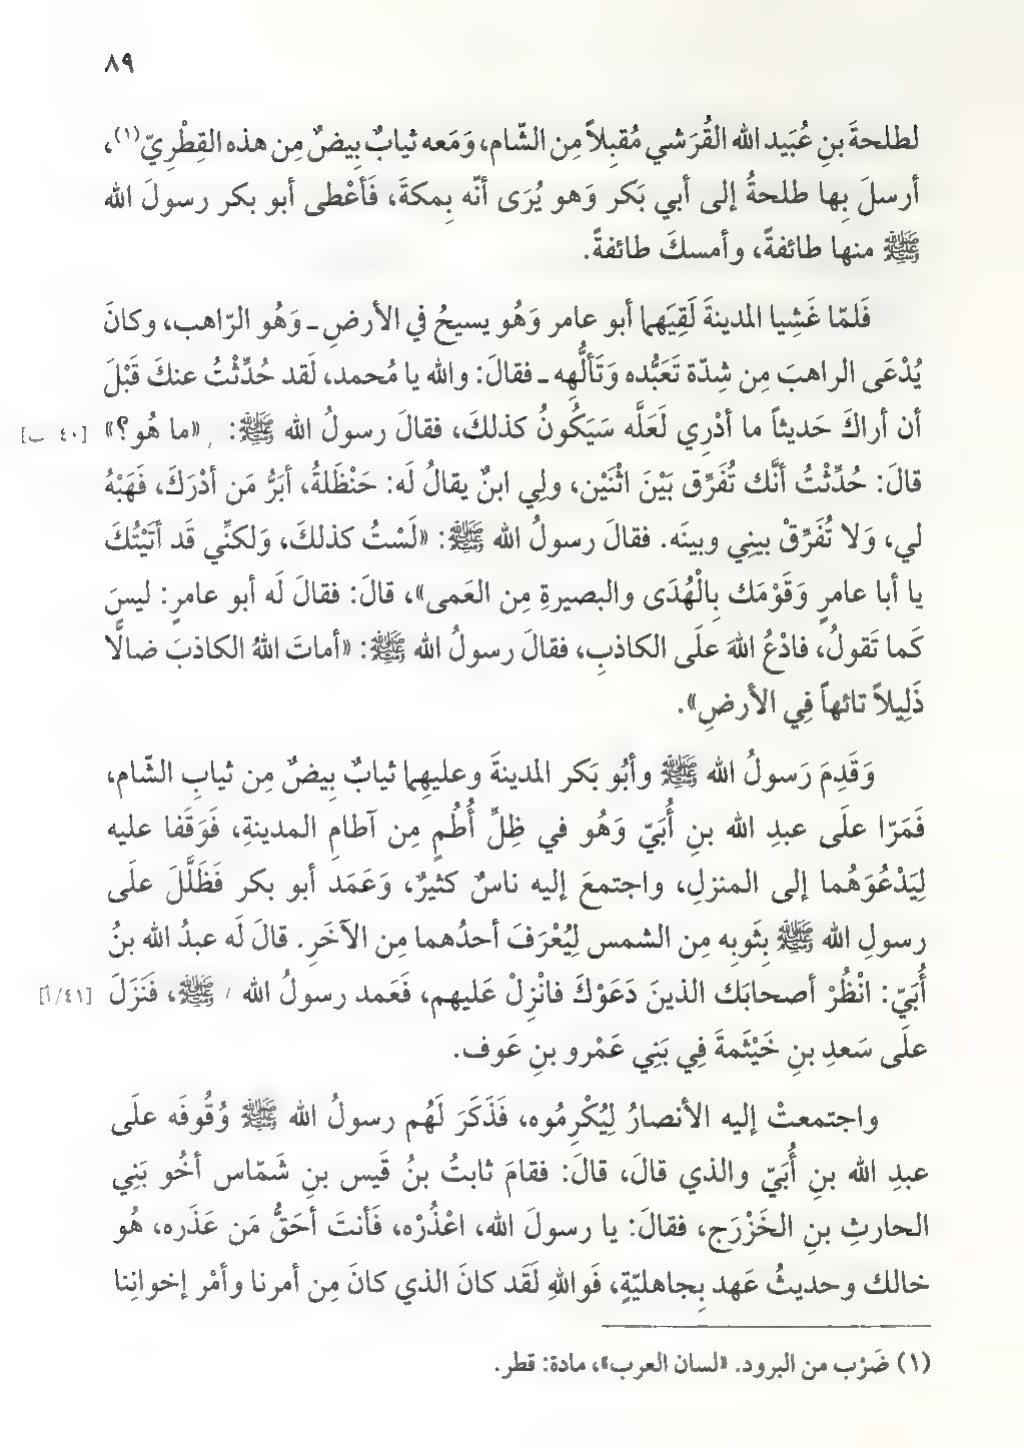 ٨٩
لطلحةَ بنِ عُبَيد الله القُرَشي مُقبِلاً مِن الشّام، وَمَعه ثيابٌ بِيضٌ مِن هذه القِطْرِيّ(١)،
أرسلَ بِها طلحةُ إلى أبي بَكر وَهو يُرَى أنّه بِمكةَ، فَأعْطى أبو بكر رسولَ الله
ﷺ منها طائفةً، وأمسكَ طائفةً.
فَلمّا غَشِيا المدينةَ لَقِيَهما أبو عامر وَهُو يسيحُ في الأرضِ ـ وَهُو الرّاهب، وكانَ
يُدْعَى الراهبَ مِن شِدّة تَعَبُّده وَتَألُّهِه ـ فقالَ: والله يا مُحمد، لَقد حُدِّثْتُ عنكَ قَبْلَ
أن أراكَ حَديثاً ما أدْرِي لَعَلَّه سَيَكُونُ كذلكَ، فقالَ رسولُ الله ﷺ: «ما هُو؟» [٤٠ ب]
قالَ: حُدِّثْتُ أنَّك تُفَرِّق بَيْنَ اثْنَيْن، ولِي ابنٌ يقالُ لَه: حَنْظَلةُ، أبَرُّ مَن أدْرَكَ، فَهَبْهُ
لي، وَلا تُفَرِّقْ بينِي وبينَه. فقالَ رسولُ الله ﷺ: «لَسْتُ كذلكَ، وَلكنِّي قَد أتَيْتُكَ
يا أبا عامرٍ وَقَوْمَك بِالْهُدَى والبصيرةِ مِن العَمى»، قالَ: فقالَ لَه أبو عامرٍ: ليسَ
كَما تَقولُ، فادْعُ اللهَ علَى الكاذبِ، فقالَ رسولُ الله ﷺ: «أماتَ اللهُ الكاذبَ ضالًّا
ذَلِيلاً تائهاً فِي الأرضِ».
وَقَدِمَ رَسولُ الله ﷺ وأبُو بَكر المدينةَ وعليهِما ثيابٌ بِيضٌ مِن ثيابِ الشّام،
فَمَرّا علَى عبدِ الله بنِ أُبَيّ وَهُو في ظِلِّ أُطُمٍ مِن آطامِ المدينةِ، فَوَقَفا عليه
لِيَدْعُوَهُما إلى المنزلِ، واجتمعَ إليه ناسٌ كثيرٌ، وَعَمَد أبو بكر فَظَلَّلَ علَى
رسولِ الله ﷺ بِثَوبِه مِن الشمس لِيُعْرَفَ أحدُهما مِن الآخَرِ. قالَ لَه عبدُ الله بنُ
أُبَيّ: انْظُرْ أصحابَك الذينَ دَعَوْكَ فانْزِلْ عَليهم، فَعَمد رسولُ الله / ﷺ، فَنَزَلَ [٤١/أ]
علَى سَعدِ بنِ خَيْثَمةَ فِي بَنِي عَمْرو بنِ عَوف.
واجتمعتْ إليه الأنصارُ لِيُكْرِمُوه، فَذَكَرَ لَهُم رسولُ الله ﷺ وُقُوفَه علَى
عبدِ الله بنِ أُبَيّ والذي قالَ، قالَ: فقامَ ثابتُ بنُ قَيس بنِ شَمّاس أخُو بَنِي
الحارثِ بنِ الخَزْرَج، فقالَ: يا رسولَ الله، اعْذُرْه، فَأنتَ أحَقُّ مَن عَذَره، هُو
خالك وحديثُ عَهد بِجاهليّةٍ، فَواللهِ لَقَد كانَ الذي كانَ مِن أمرنا وأمْر إخوانِنا
(١) ضَرْب من البرود. «لسان العرب»، مادة: قطر.